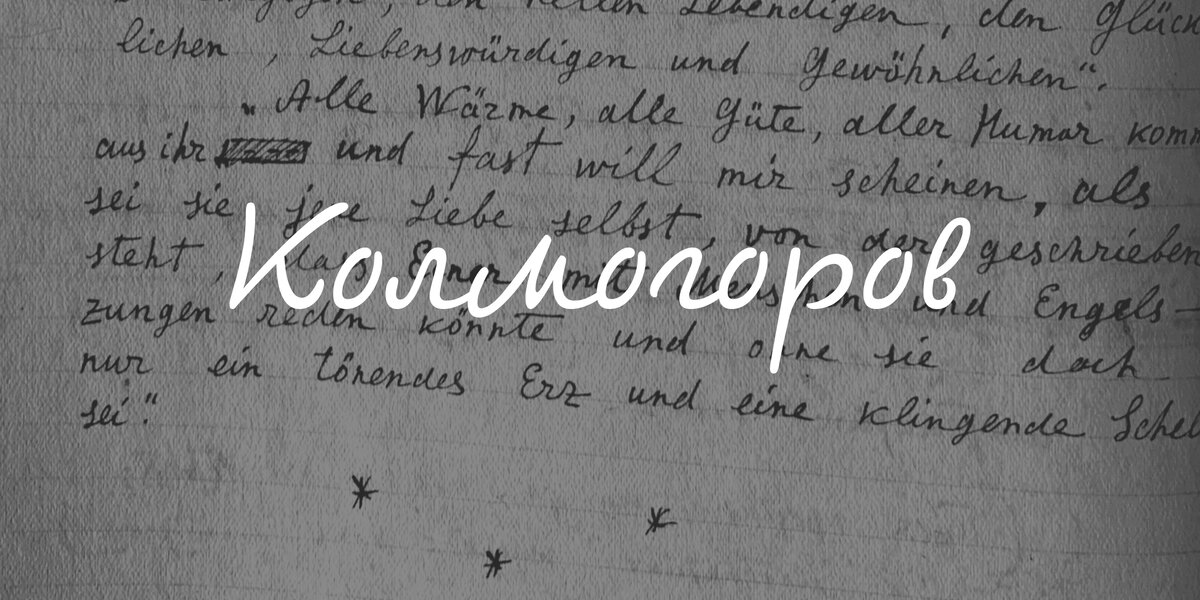 den hellen Lebendigen, den Glück
lichen, Liebenswürdigen und Gewöhnlichen“.
„Alle Wärme, alle Güte, aller Humor komm
aus ihr und fast will mir scheinen, als
sei sie jene Liebe selbst, von der geschrieben
steht, dass Einer mit Menschen und Engels-
Колмогоров
zungen reden könnte und ohne sie doch
nur ein tönendes Erz und eine klingende Schel
sei.“